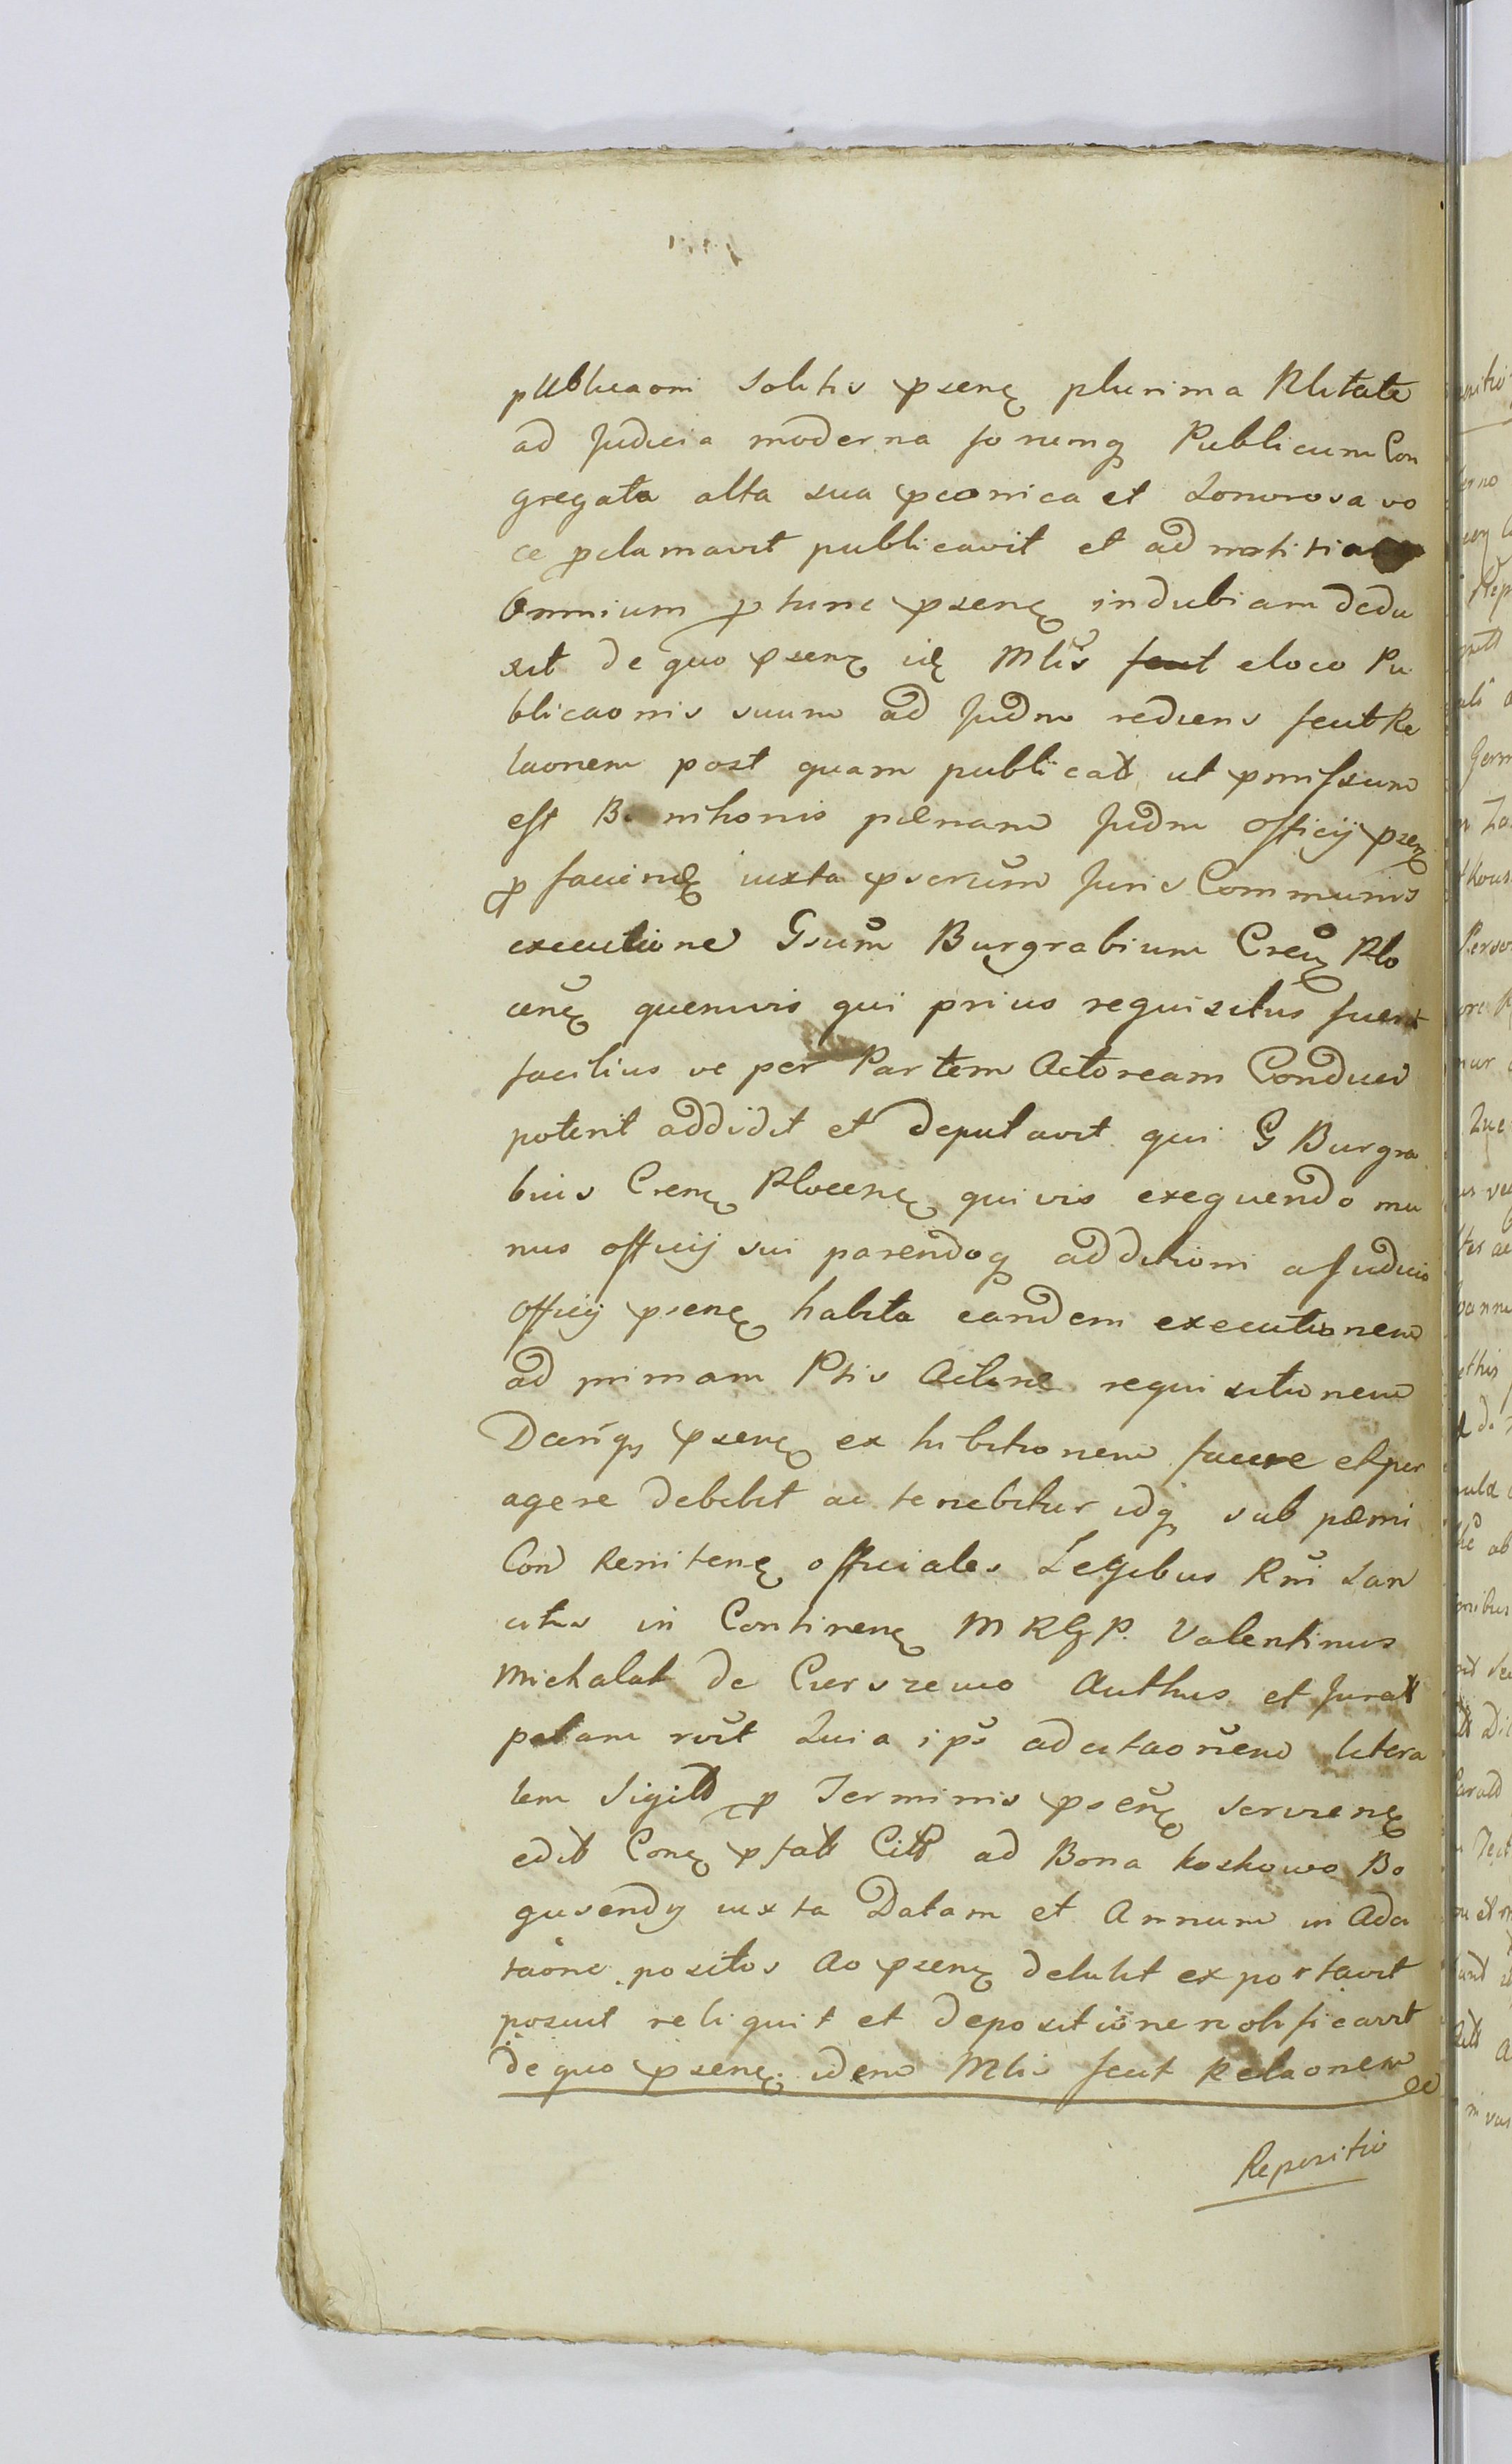 publicaoni solitis psenę plurima Nlitate
ad Judicia moderna forumq Publicum Con
gregata alta sua pconica et Sonorosa vo
ce pclamavit publicavit et ad notitiam
Omnium p tunc psenę indubiam dedu
xit de quo psenę idę Mlis fecit eloco Pu
blicaonis suum ad Judm rediens fecit Re
laonem post quam publicat ut pmissum
est Bannitionis pænam Judm Officÿ psenę
p faciendę iuxta pscrum Juris Communis
executione Gsum Burgrabium Crens Plo
cenę quemvis qui prius requisitus fuerit
facilius ve per Partem Actoream Conduci
poterit addidit et deputavit qui G Burgra
bius Crenę Plocenę quivis exequendo mu
nus officÿ sui parendoq additioni a Judicio
Officÿ psenę habita eandem executionem
ad primam Ptis Actoreæ requisitionem
Decriq psenę exhibitionem facere et per
agere debebit ac tenebitur idq sub pæni
Con Renitenę officiales Legibus Rni San
citis in Continenę M R G P. Valentinus
Michalak de Cierszewo Authus et Jurat
palam rōit Quia ips adcitaonem litera
lem Sigill p Terminis psenę servienę
edit Conę pfatt Citt ad Bona Koskowo Bo
gusendy iuxta Datam et Annum in Adci
taone positos Ao psenę detulit exportavit
posuit reliquit et depositione notificavit
de quo psenę idem Mlis fecit Relaonem
Repositio